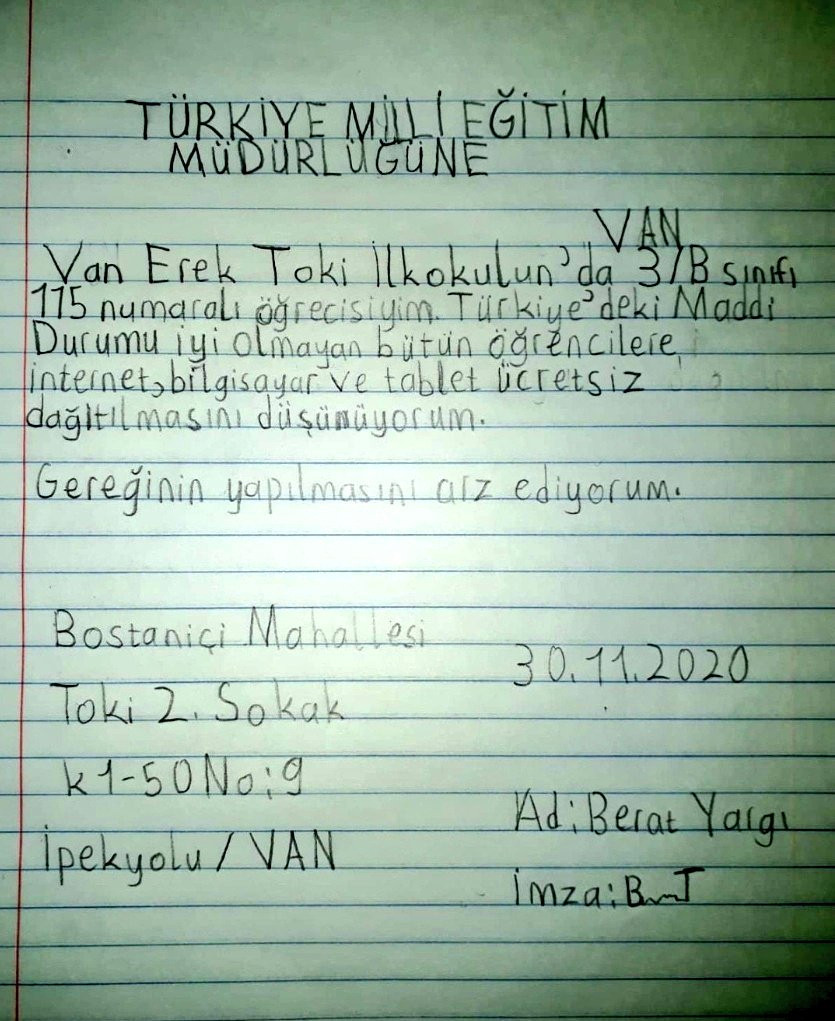 TÜRKİYE MİLLİ EĞİTİM
MÜDÜRLÜĞÜNE
VAN
Van Erek Toki İlkokulun'da 3/B sınıfı
115 numaralı öğrecisiyim. Türkiye'deki Maddi
Durumu iyi olmayan bütün öğrencilere
internet, bilgisayar ve tablet ücretsiz
dağıtılmasını düşünüyorum.
Gereğinin yapılmasını arz ediyorum.
Bostaniçi Mahallesi
30.11.2020
Toki 2. Sokak
k1-50 No:9
Ad: Berat Yargı
İpekyolu / VAN
İmza: